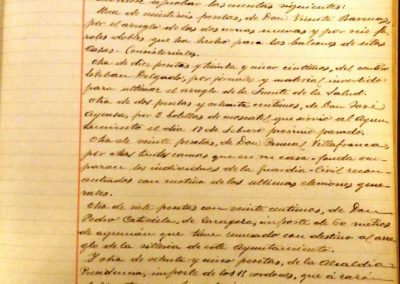 aprobar las cuentas siguientes:
Una de veintiseis pesetas, de Don Vicente Barrau,
por el arreglo de las dos urnas nuevas y por seis fa-
roles dobles que ha hecho para los balcones de estas
Casas-Consistoriales.
Otra de diez pesetas y treinta y cinco centimos, del cantero
Esteban Delgado, por jornales y material invertido
para ultimar el arreglo de la Fuente de la Salud.
Otra de dos pesetas y ochenta centimos, de Don José
Ayensa, por 2 botellas de moscatel que sirvió al Ayun-
tamiento el dia 17 de Febrero proximo pasado.
Otra de veinte pesetas, de Don Tomas Villafranca,
por otras tantas camas que en su casa-fonda ocu-
paron los individuos de la Guardia-Civil recon-
centrados con motivo de las ultimas elecciones gene-
rales.
Otra de siete pesetas con veinte centimos, de Don
Pedro Cativiela, de Zaragoza, importe de 60 metros
de que tiene enviado con destino al arre-
glo de la silleria de este Ayuntamiento.
Y otra de ochenta y cinco pesetas, de la Alcaldia
Presidencia, importe de los 15 cordones, que á razón